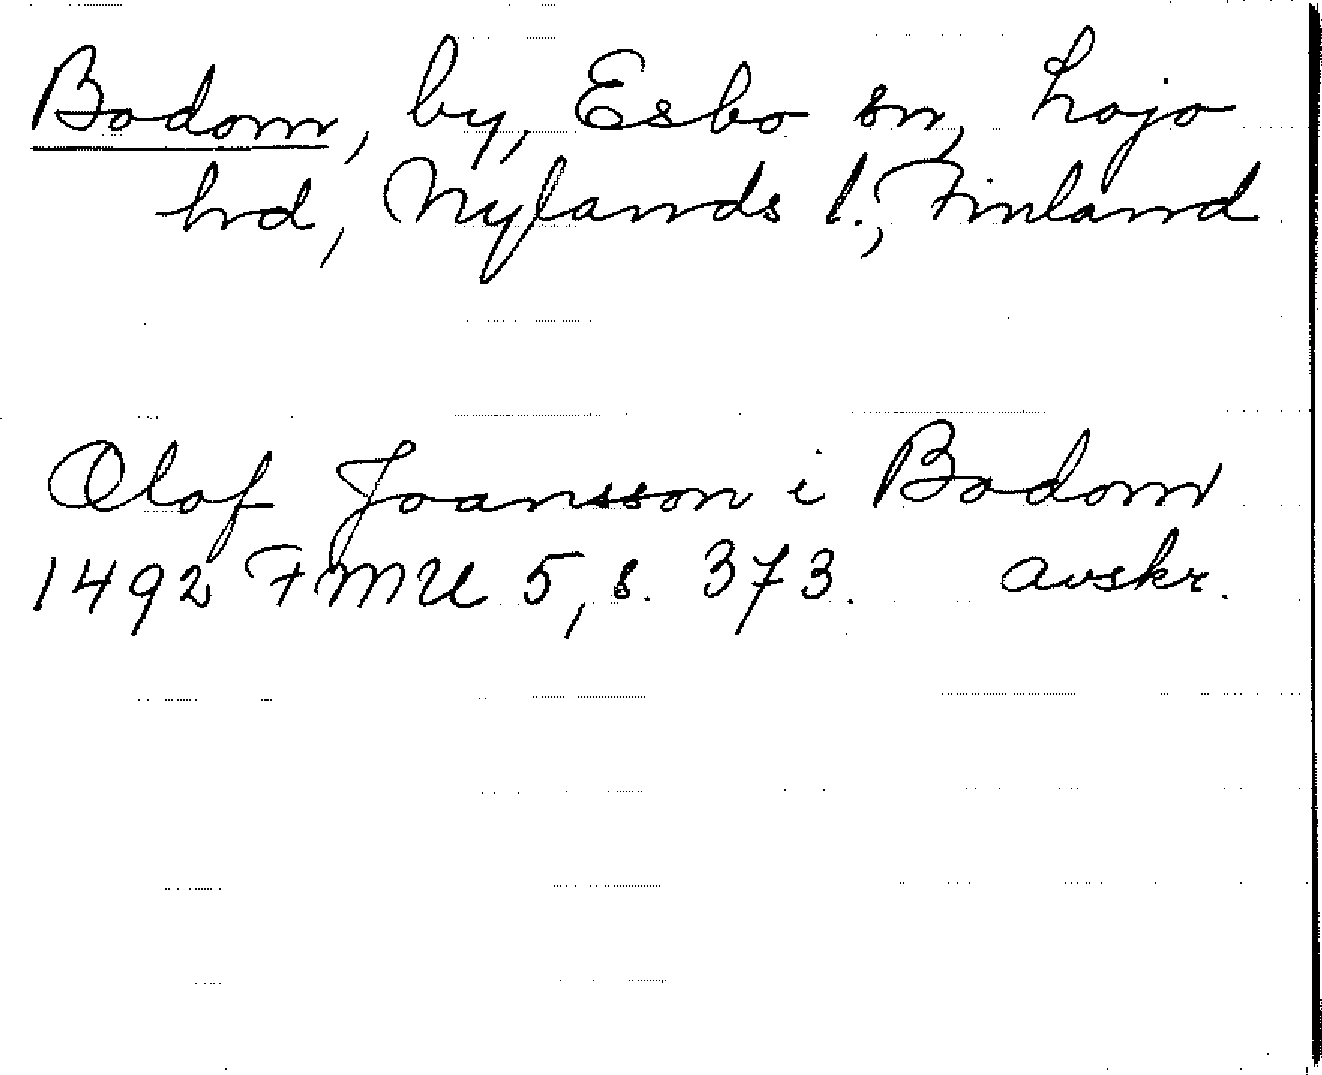 Bodom, by, Esbo sn, Lojo
hrd, Nylands l., Finland
Olof Joansson i Bodom
1492 FMU 5, s. 373. avskr.